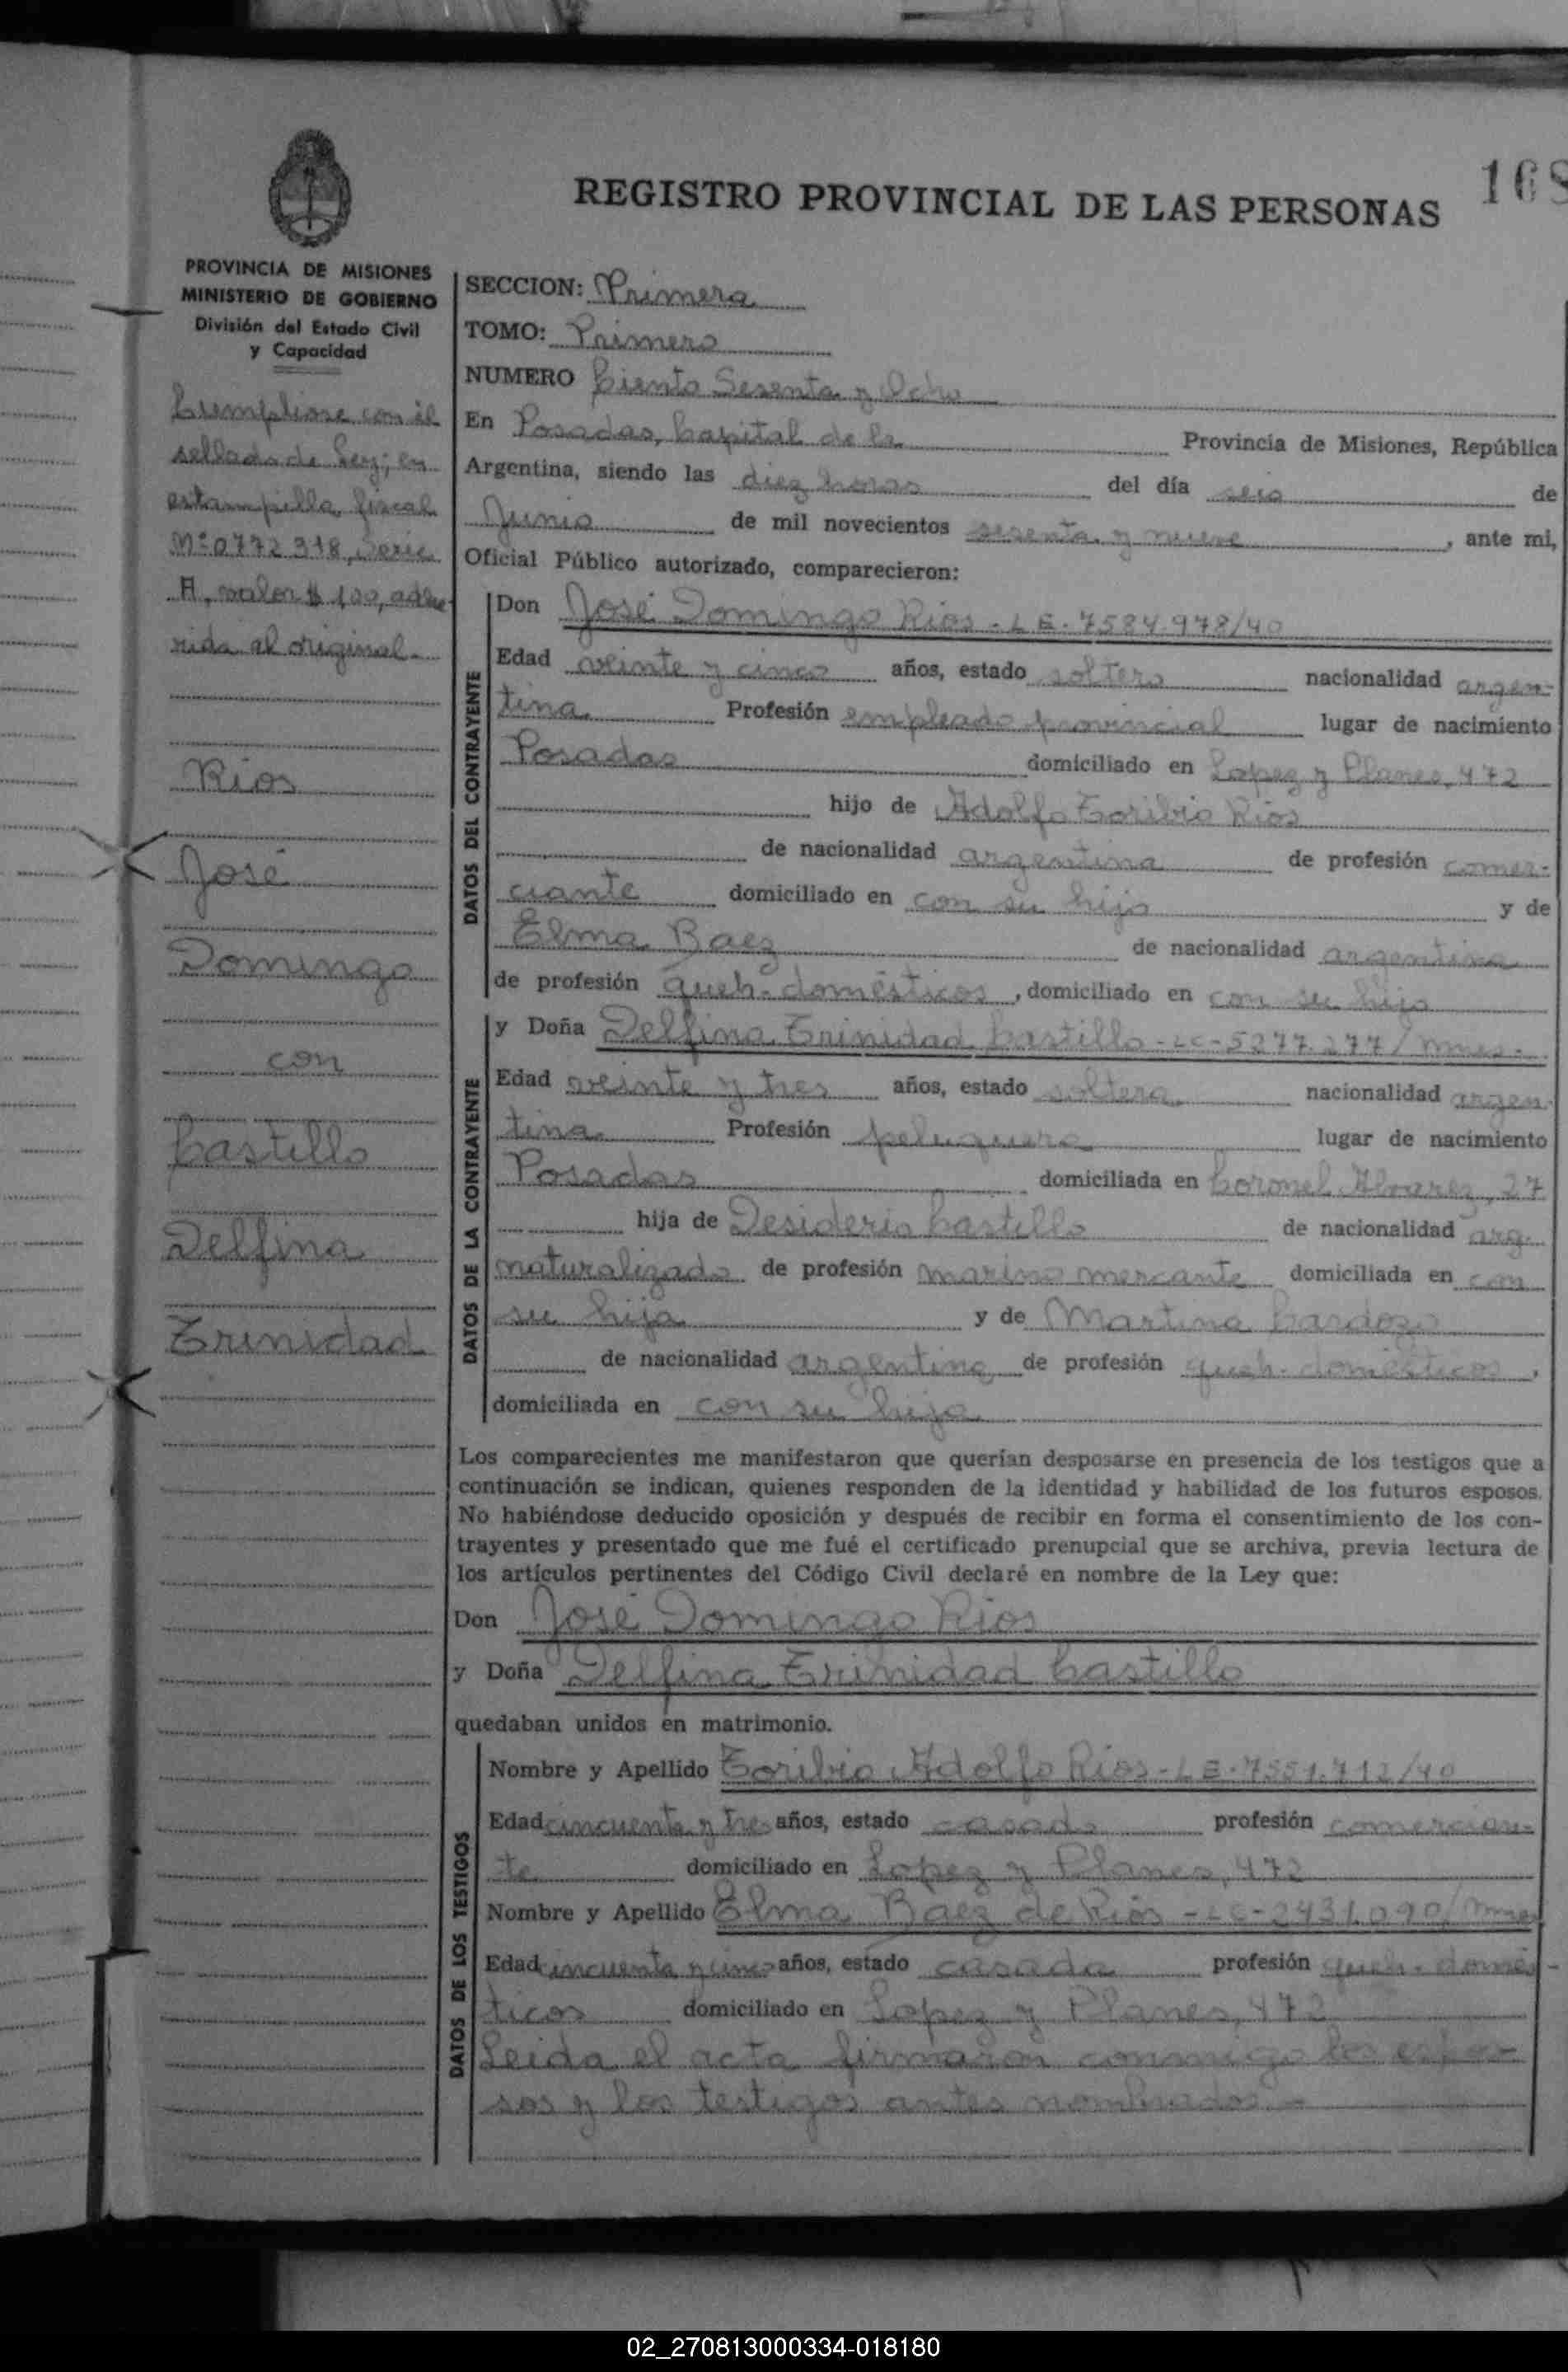 168
REGISTRO PROVINCIAL DE LAS PERSONAS
PROVINCIA DE MISIONES
MINISTERIO DE GOBIERNO
División del Estado Civil
y Capacidad
Cumpliose con el
sellado de Ley; en
estampilla fiscal
Nº 0772318, Serie
A, valor $ 100, adhe-
rida al original.-
Rios
José
Domingo
con
Castillo
Delfina
Trinidad
SECCION: Primera
TOMO: Primero
NUMERO Ciento Sesenta y Ocho
En Posadas, Capital de la Provincia de Misiones, República
Argentina, siendo las diez horas del día seis de
Junio de mil novecientos sesenta y nueve, ante mi,
Oficial Público autorizado, comparecieron:
DATOS DEL CONTRAYENTE
Don José Domingo Rios - L E - 7584978/40
Edad veinte y cinco años, estado soltero nacionalidad argen-
tina Profesión empleado provincial lugar de nacimiento
Posadas domiciliado en Lopez y Planes, 472
hijo de Adolfo Toribio Rios
de nacionalidad argentina de profesión comer-
ciante domiciliado en con su hijo y de
Elma Baez de nacionalidad argentina
de profesión queh-domésticos, domiciliado en con su hijo
DATOS DE LA CONTRAYENTE
y Doña Delfina Trinidad Castillo - LC - 5277.277/Mnes.
Edad veinte y tres años, estado soltera nacionalidad argen-
tina Profesión peluquera lugar de nacimiento
Posadas domiciliada en Coronel Alvarez, 27
hija de Desiderio Castillo de nacionalidad arg.
naturalizado de profesión marino mercante domiciliada en con
su hija y de Martina Cardozo
de nacionalidad argentina de profesión queh-domésticos,
domiciliada en con su hija
Los comparecientes me manifestaron que querían desposarse en presencia de los testigos que a
continuación se indican, quienes responden de la identidad y habilidad de los futuros esposos.
No habiéndose deducido oposición y después de recibir en forma el consentimiento de los con-
trayentes y presentado que me fué el certificado prenupcial que se archiva, previa lectura de
los artículos pertinentes del Código Civil declaré en nombre de la Ley que:
Don José Domingo Rios
y Doña Delfina Trinidad Castillo
quedaban unidos en matrimonio.
DATOS DE LOS TESTIGOS
Nombre y Apellido Toribio Adolfo Rios - L E - 7551.712/40
Edad cincuenta y tres años, estado casado profesión comercian-
te domiciliado en Lopez y Planes, 472
Nombre y Apellido Elma Baez de Rios - LC - 2431.090/Mnes
Edad cincuenta y cinco años, estado casada profesión queh-domés-
ticos domiciliado en Lopez y Planes, 472
Leida el acta firmaron conmigo los espo-
sos y los testigos antes nombrados.-
02_270813000334-018180